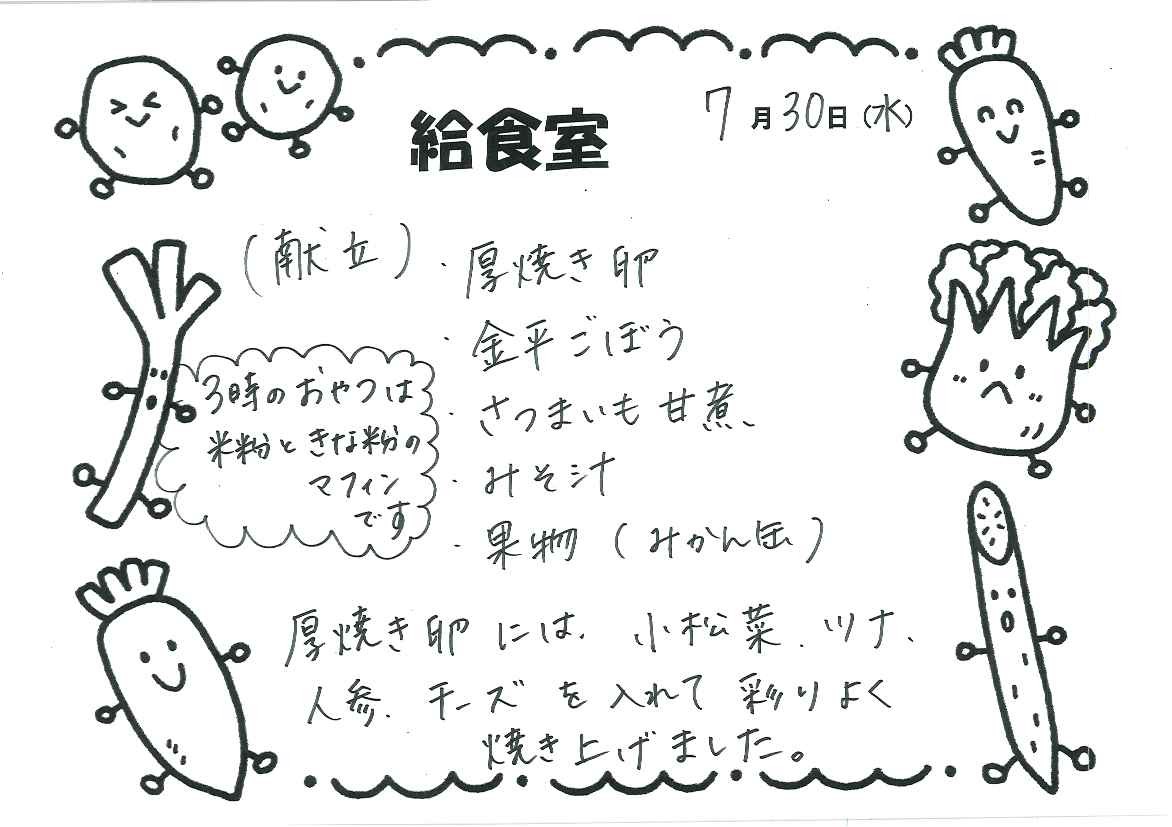 給食室
7月30日(水)
(献立)・厚焼き卵
・金平ごぼう
・さつまいも甘煮
・みそ汁
・果物(みかん缶)
3時のおやつは
米粉ときな粉の
マフィン
です
厚焼き卵には、小松菜、ツナ、
人参、チーズを入れて彩りよく
焼き上げました。